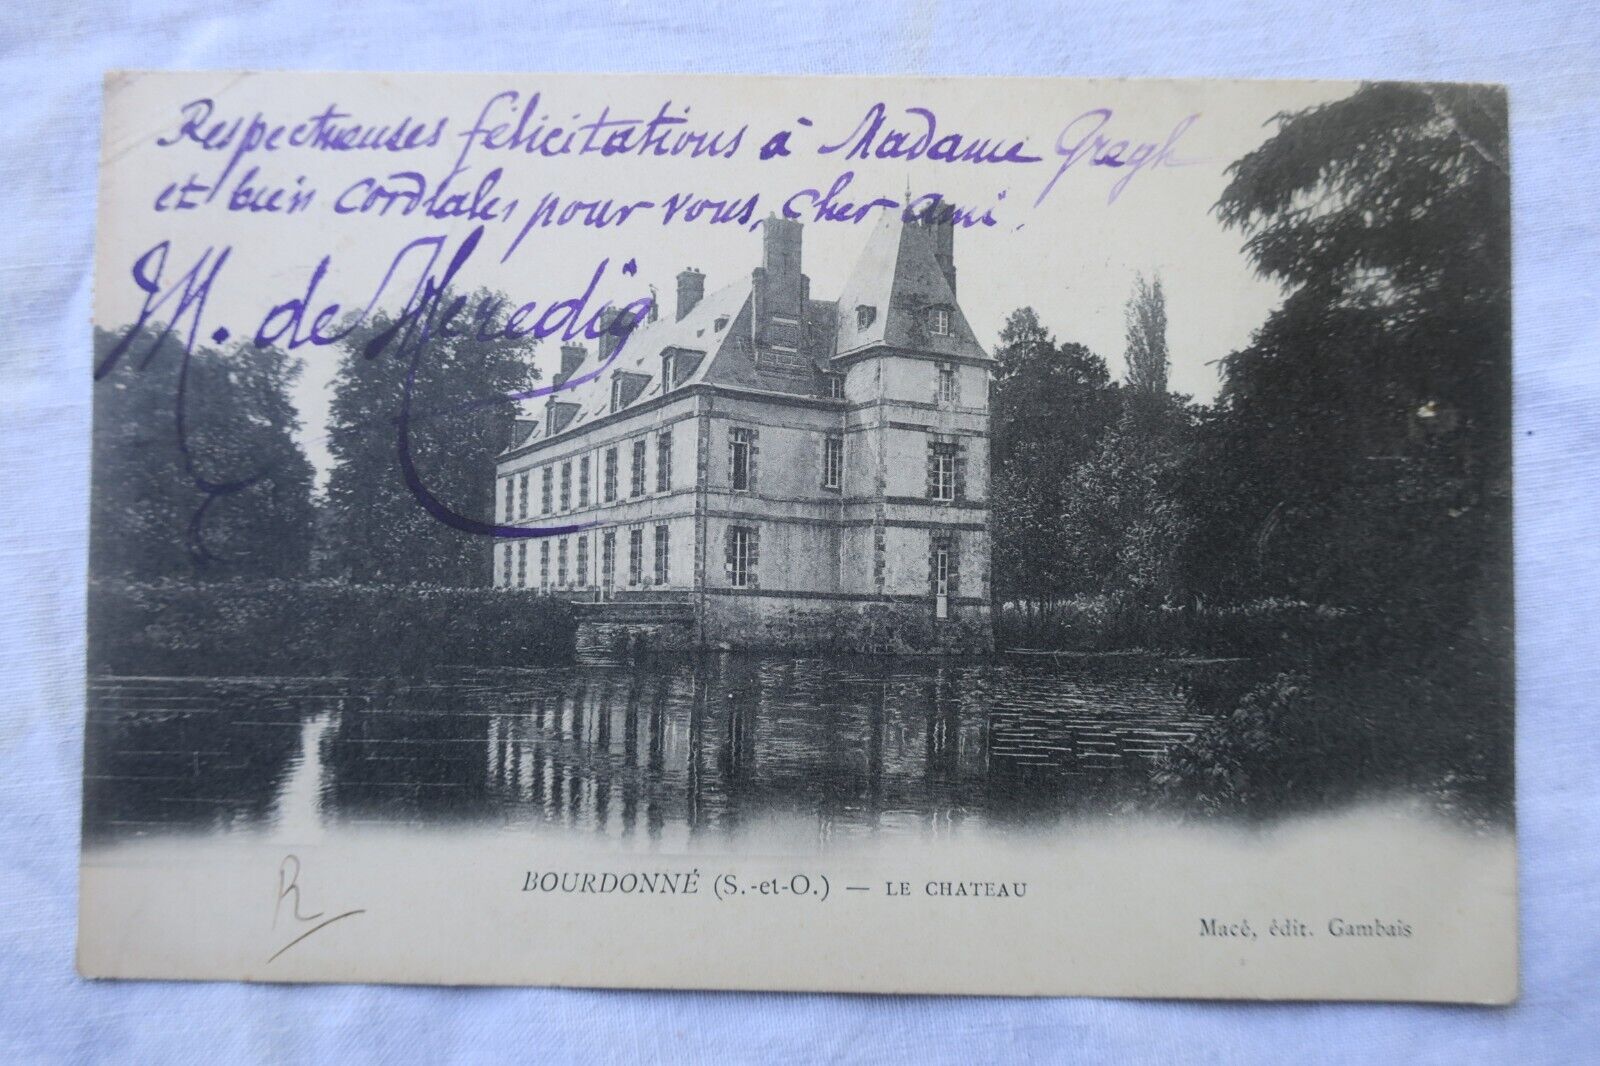 Respectueuses félicitations à Madame Gregh
et bien cordiales pour vous, cher ami.
M. de Heredia
R
BOURDONNÉ (S.-et-O.) — LE CHATEAU
Macé, édit. Gambais